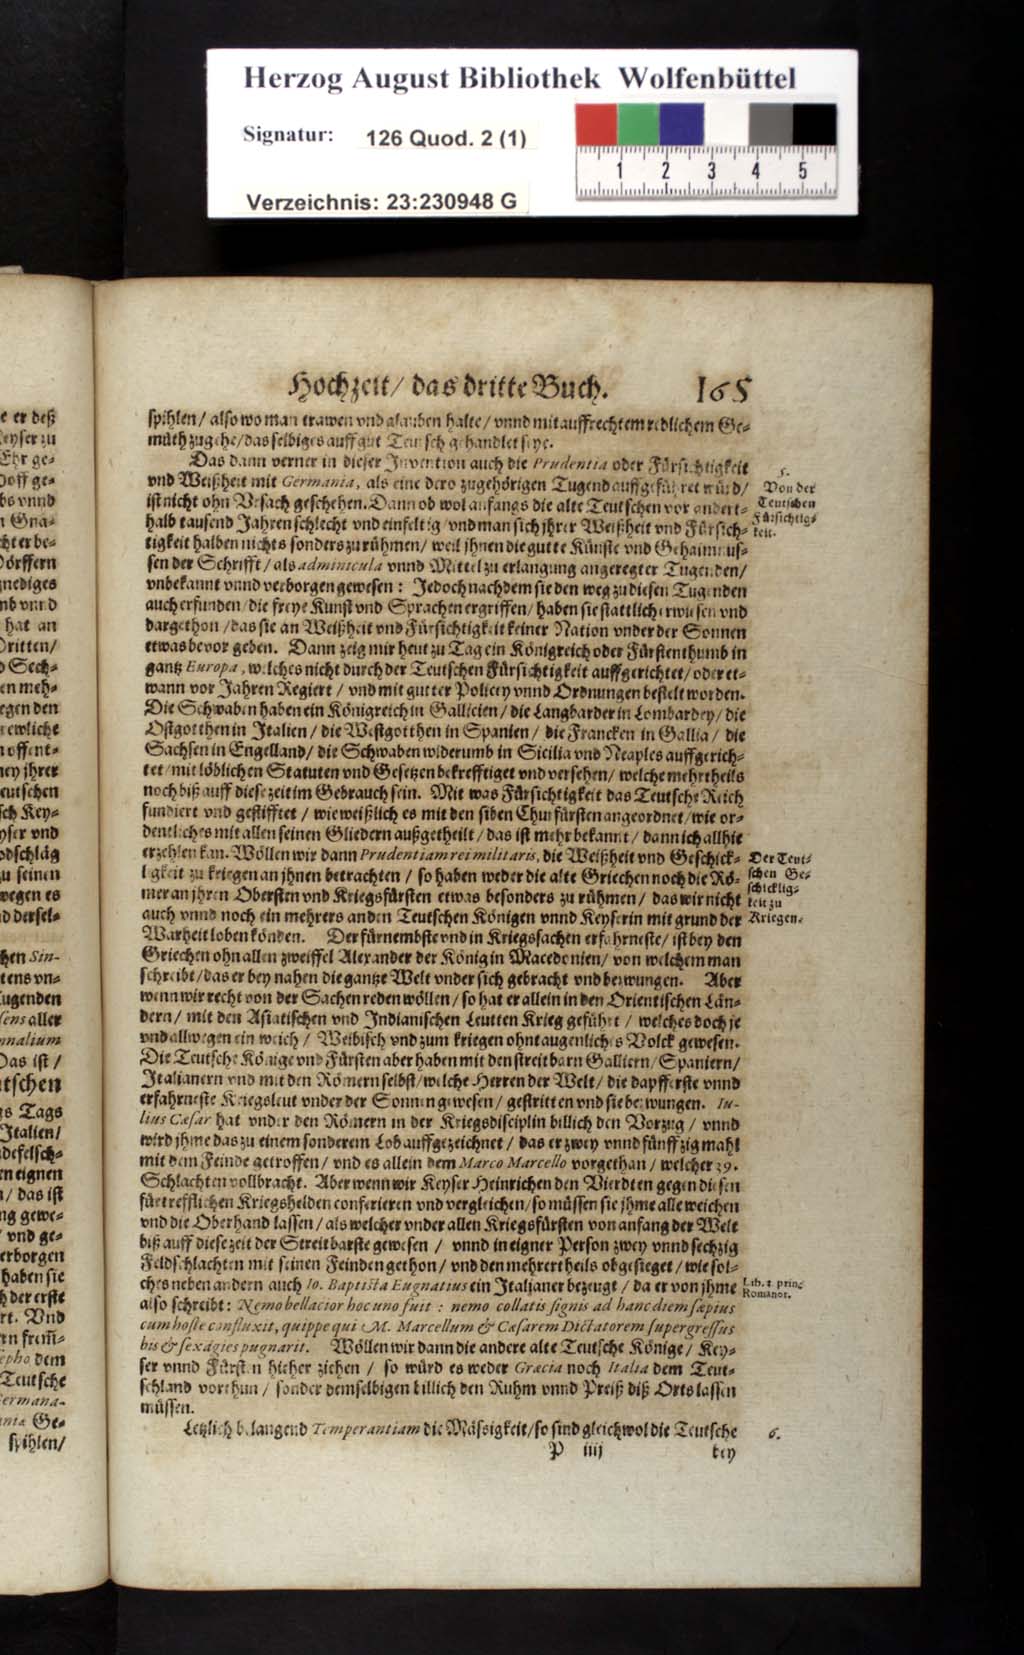 Herzog August Bibliothek Wolfenbüttel
Signatur: 126 Quod. 2 (1)
1 2 3 4 5
Verzeichnis: 23:230948 G
Hochzeit/ das dritte Buch. 165
spihlen/ also wo man trawen vnd glauben halte/ vnnd mit auffrechtem redlichem Ge-
müth zugehe/ das selbiges auff gut Teutsch gehandlet seye.
Das dann verner in dieser Invention auch die Prudentia oder Fürsichtigkeit
vnd Weißheit mit Germania, als eine dero zugehörigen Tugend auffgeführet würd/
ist nicht ohn Vrsach geschehen. Dann ob wol anfangs die alte Teutschen vor andert-
halb tausend Jahren schlecht vnd einfeltig/ vnd man sich jhrer Weißheit vnd Fürsich-
tigkeit halben nichts sonders zu rühmen/ weil jhnen die gutte Künste vnd Gehaimnus-
sen der Schrifft/ als adminicula vnnd Mittel zu erlangung angeregter Tugenden/
vnbekannt vnnd verborgen gewesen: Jedoch nachdem sie den weg zu diesen Tugenden
auch erfunden/ die freye Kunst vnd Sprachen ergriffen/ haben sie stattlich erwiesen vnd
dargethon/ das sie an Weißheit vnd Fürsichtigkeit keiner Nation vnder der Sonnen
etwas bevor geben. Dann zeig mir heut zu Tag ein Königreich oder Fürstenthumb in
gantz Europa, welches nicht durch der Teutschen Fürsichtigkeit auffgerichtet/ oder et-
wann vor Jahren Regiert/ vnd mit gutter Policey vnnd Ordnungen bestelt worden.
Die Schwaben haben ein Königreich in Gallicien/ die Langbarder in Lombardey/ die
Ostgotthen in Italien/ die Westgotthen in Spanien/ die Francken in Gallia/ die
Sachsen in Engelland/ die Schwaben widerumb in Sicilia vnd Neaples auffgerich-
tet/ mit löblichen Statuten vnd Gesetzen bekrefftiget vnd versehen/ welche mehrtheils
noch biß auff diese zeit im Gebrauch sein. Mit was Fürsichtigkeit das Teutsche Reich
fundiert vnd gestifftet/ wie weißlich es mit den siben Churfürsten angeordnet/ wie or-
dentliches mit allen seinen Gliedern außgetheilt/ das ist mehr bekannt/ dann ich allhie
erzehlen kan. Wöllen wir dann Prudentiam rei militaris, die Weißheit vnd Geschick-
ligkeit zu kriegen an jhnen betrachten/ so haben weder die alte Griechen noch die Rö-
mer an jhren Obersten vnd Kriegsfürsten etwas besonders zu rühmen/ das wir nicht
auch vnnd noch ein mehrers an den Teutschen Königen vnnd Keysern mit grund der
Warheit loben könden. Der fürnembste vnd in Kriegssachen erfahrneste/ ist bey den
Griechen ohn allen zweiffel Alexander der König in Macedonien/ von welchem man
schreibt/ das er bey nahen die gantze Welt vnder sich gebracht vnd bezwungen. Aber
wenn wir recht von der Sachen reden wöllen/ so hat er allein in den Orientischen Län-
dern/ mit den Asiatischen vnd Indianischen Leutten Krieg geführt/ welches doch je
vnd allwegen ein weich/ Weibisch vnd zum kriegen ohntaugenliches Volck gewesen.
Die Teutsche Könige vnd Fürsten aber haben mit den streitbarn Galliern/ Spaniern/
Italianern vnd mit den Römern selbst/ welche Herren der Welt/ die dapfferste vnnd
erfahrneste Kriegsleut vnder der Sonnen gewesen/ gestritten vnd sie bezwungen. Iu-
lius Cæsar hat vnder den Römern in der Kriegsdisciplin billich den Vorzug/ vnnd
wird jhme das zu einem sonderem Lob auffgezeichnet/ das er zwey vnnd fünffzig mahl
mit dem Feinde getroffen/ vnd es allein dem Marco Marcello vorgethan/ welcher 39.
Schlachten vollbracht. Aber wenn wir Keyser Heinrichen den Vierdten gegen diesen
fürtrefflichen Kriegshelden conferieren vnd vergleichen/ so müssen sie jhme alle weichen
vnd die Oberhand lassen/ als welcher vnder allen Kriegsfürsten von anfang der Welt
biß auff diese zeit der Streitbarste gewesen/ vnnd in eigner Person zwey vnnd sechzig
Feldschlachten mit seinen Feinden gethon/ vnd den mehrertheils obgesieget/ wie sol-
ches neben andern auch Io. Baptista Eugnatius ein Italianer bezeugt/ da er von jhme
also schreibt: Nemo bellacior hoc uno fuit: nemo collatis signis ad hanc diem sæpius
cum hoste confluxit, quippe qui M. Marcellum & Cæsarem Dictatorem supergressus
bis & sexágies pugnarit. Wöllen wir dann die andere alte Teutsche Könige/ Key-
ser vnnd Fürsten hieher ziehen/ so würd es weder Græcia noch Italia dem Teut-
schland vorthun/ sonder demselbigen billich den Ruhm vnnd Preiß diß Orts lassen
müssen.
Letzlich belangend Temperantiam die Mässigkeit/ so sind gleichwol die Teutsche
P iiij bey
5.
Von der
Teutschen
Fürsichtig-
keit.
Der Teut-
schen Ge-
schicklig-
keit zu
Kriegen.
Lib. 1. prin.
Romanor.
6.